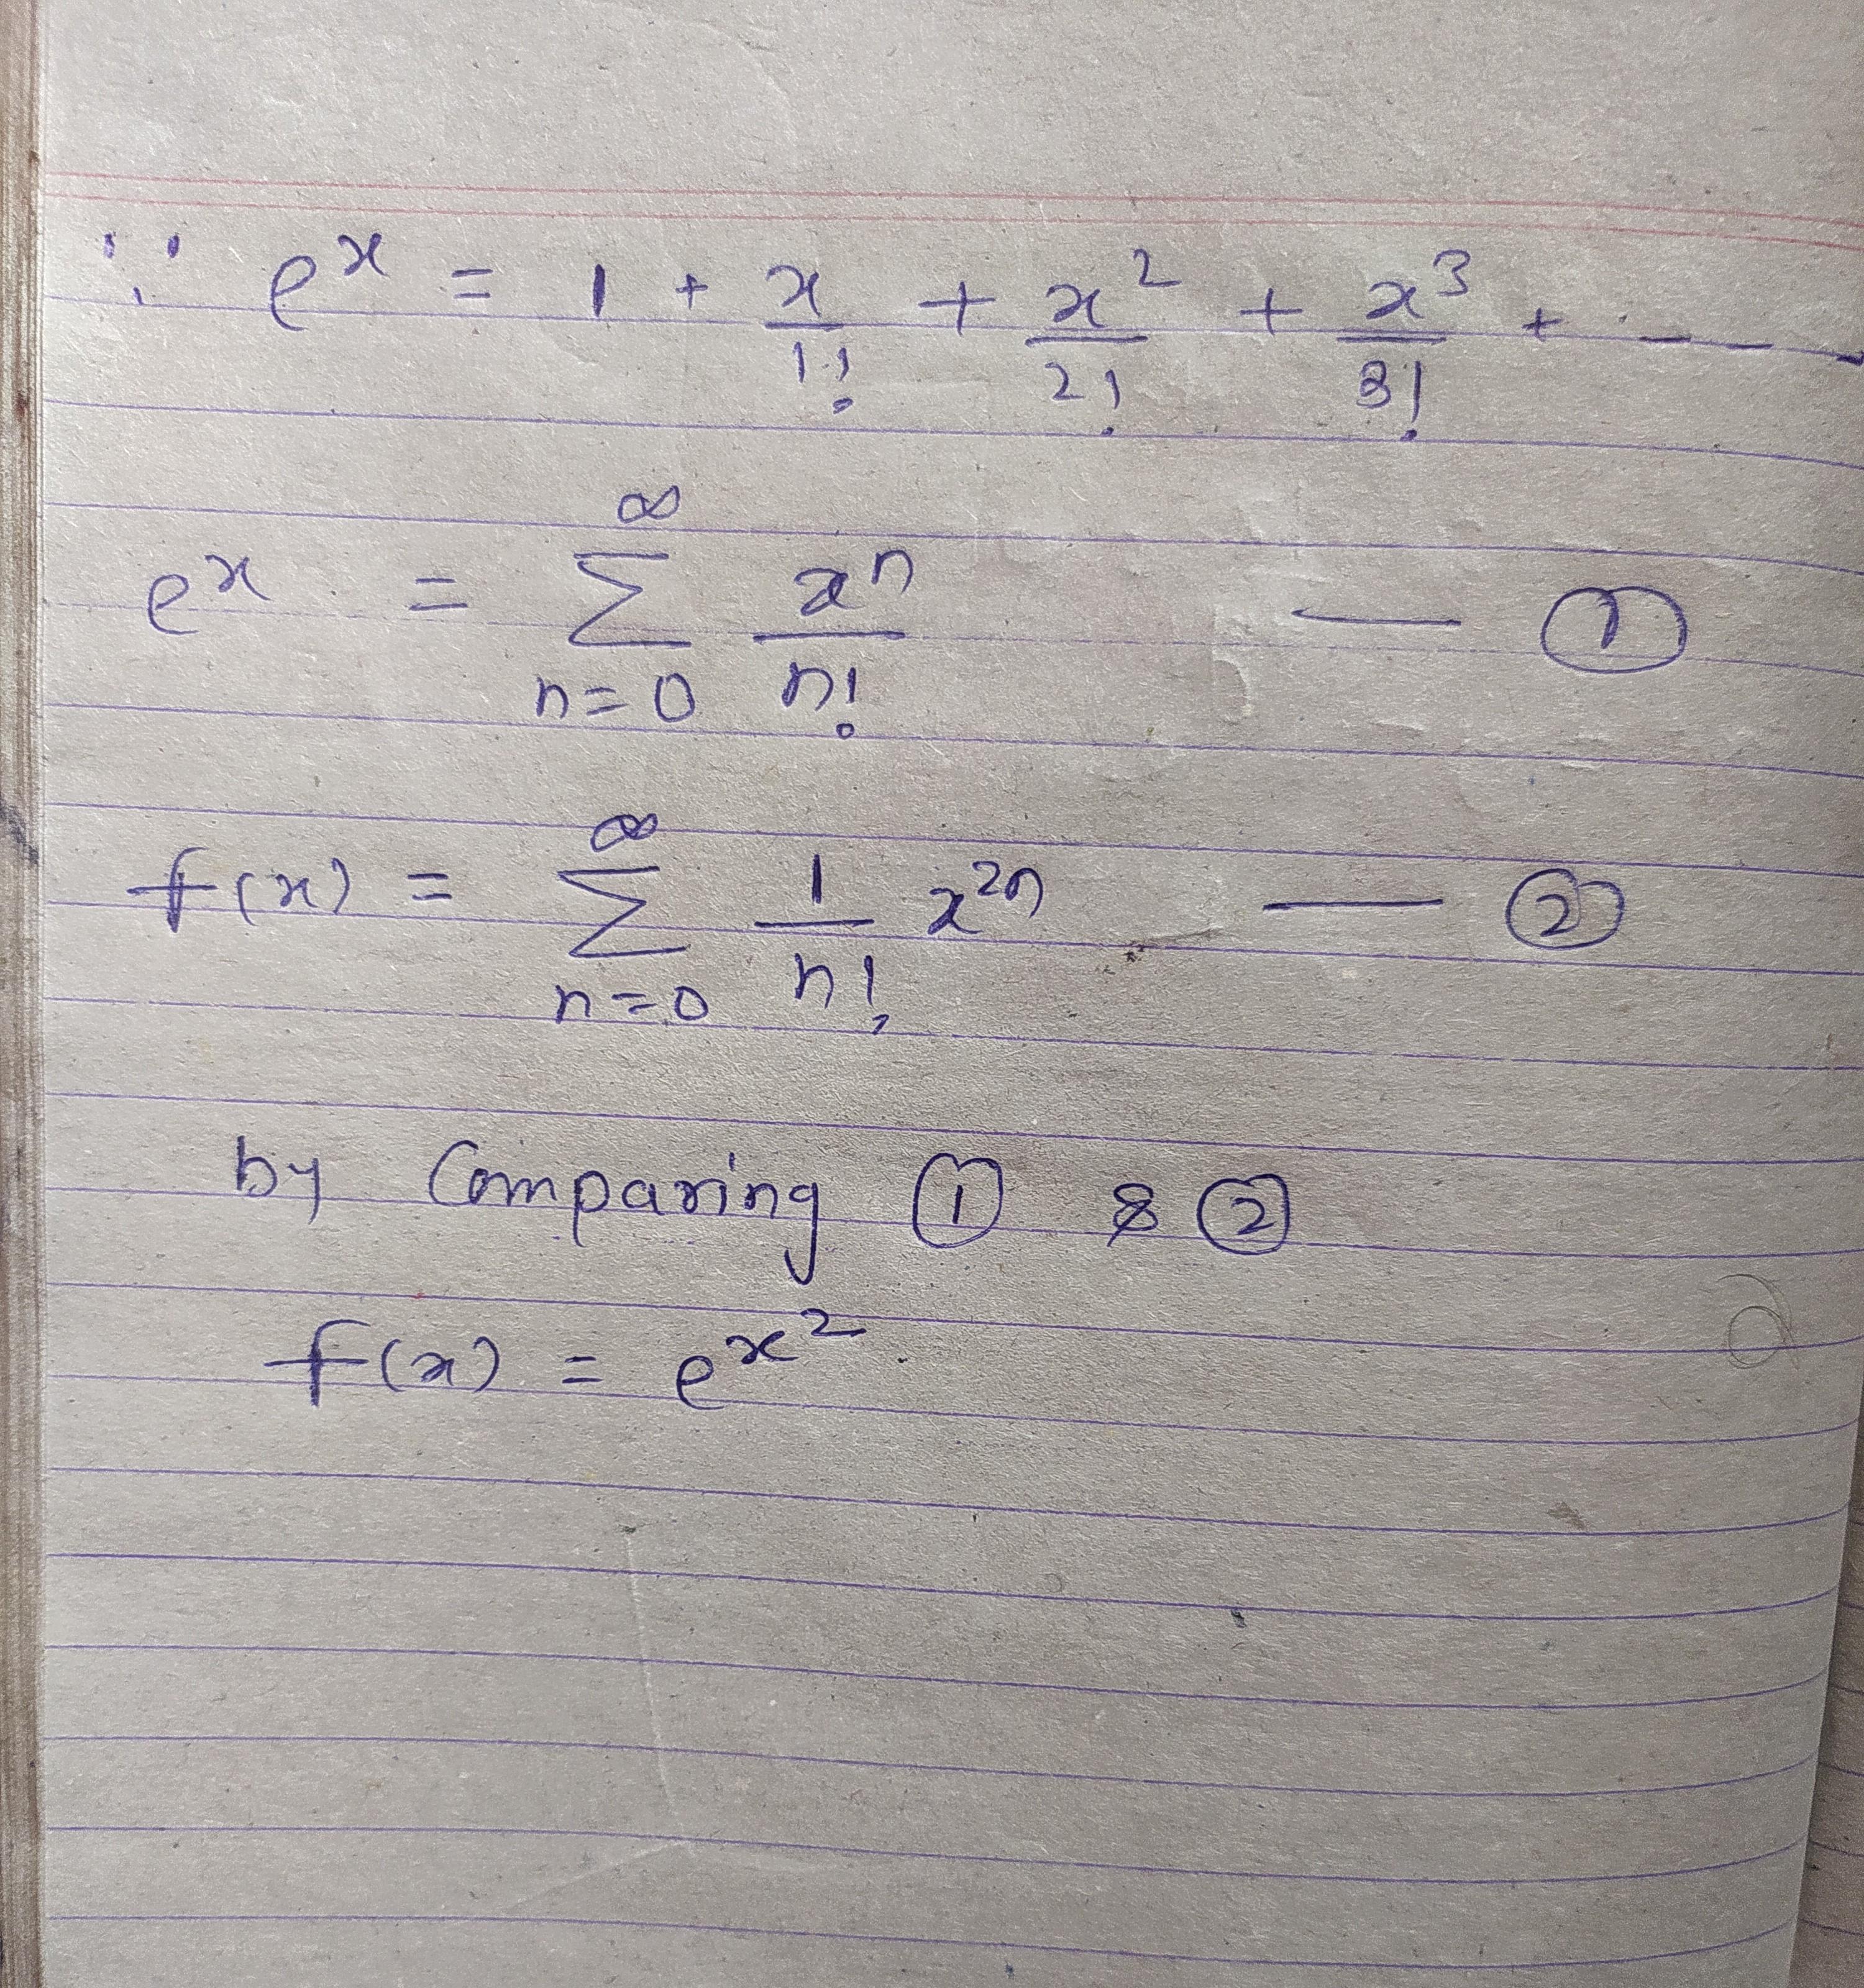 ∵ e^x = 1 + x/1! + x^2/2! + x^3/3! + - - -
e^x = ∑_{n=0}^{∞} x^n/n! — ①
f(x) = ∑_{n=0}^{∞} 1/n! x^{2n} — ②
by Comparing ① & ②
f(x) = e^{x^2}